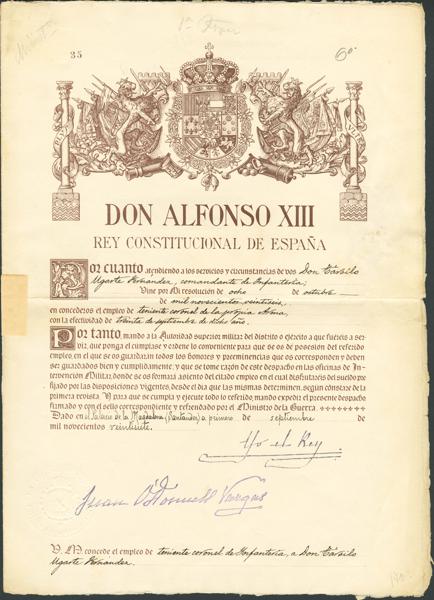 35
6º
DON ALFONSO XIII
REY CONSTITUCIONAL DE ESPAÑA
Por cuanto, atendiendo a los servicios y circunstancias de vos Don Társilo
Ugarte Fernández, comandante de Infantería;
Vine por Mi resolución de ocho de octubre
de mil novecientos veintiséis,
en concederos el empleo de teniente coronel de la propia Arma,
con la efectividad de treinta de septiembre de dicho año.
Por tanto, mando a la Autoridad superior militar del distrito o ejército a que fuereis a servir,
que ponga el cúmplase y ordene lo conveniente para que se os dé posesión del referido
empleo, en el que se os guardarán todos los honores y preeminencias que os corresponden y deben
ser guardados bien y cumplidamente; y que se tome razón de este despacho en las oficinas de In-
tervención Militar, donde se os formará asiento del citado empleo en el cual disfrutaréis del sueldo pre-
fijado por las disposiciones vigentes, desde el día que las mismas determinen, según constare de la
primera revista. Y para que se cumpla y ejecute todo lo referido, mando expedir el presente despacho
firmado y con el sello correspondiente y refrendado por el Ministro de la Guerra.
Dado en el Palacio de la Magdalena (Santander) a primero de septiembre de
mil novecientos veintisiete.
Yo el Rey
Juan O'Donnell Vargas
V. M. concede el empleo de teniente coronel de Infantería, a Don Társilo
Ugarte Fernández.